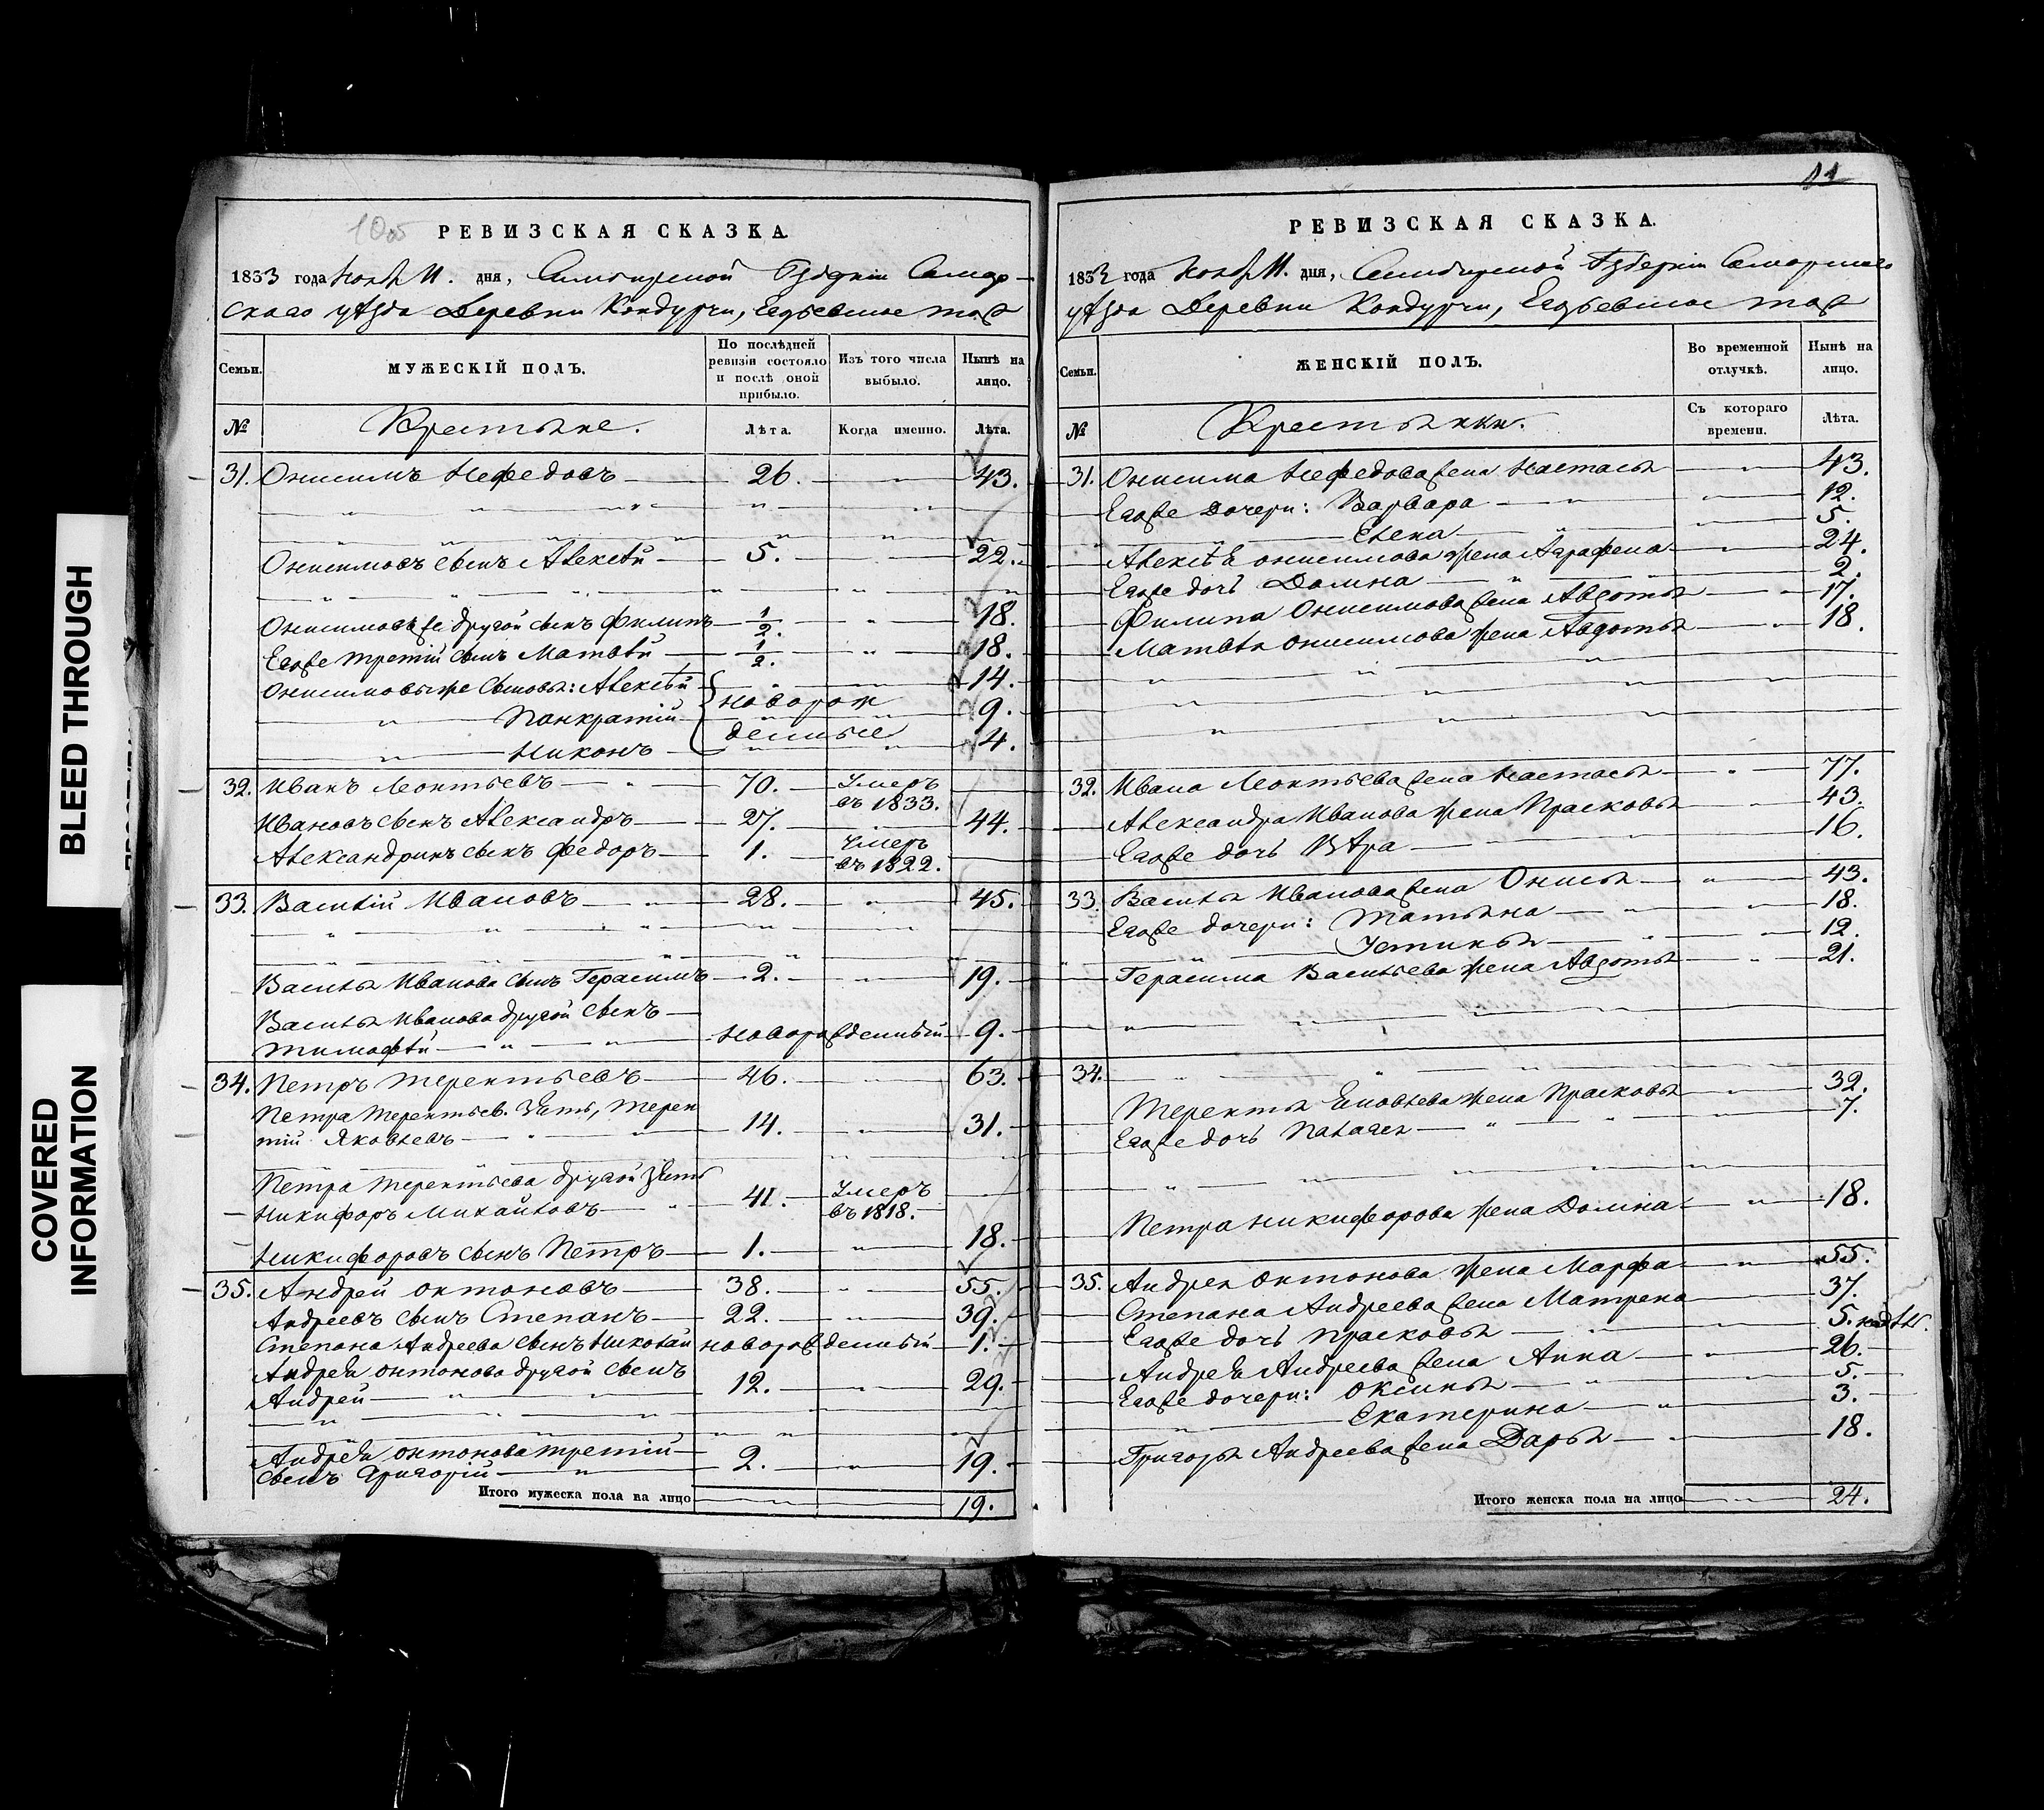 BLEED THROUGH
COVERED
INFORMATION
РЕВИЗСКАЯ СКАЗКА
1833 года Нояб. 11. дня, Симбирской Губерніи Самар-
скаго уѣзда Деревни Кондурчи,
Семьи.
МУЖЕСКІЙ ПОЛЪ.
По послѣдней ревизіи состояло и послѣ оной прибыло.
Изъ того числа выбыло.
Нынѣ на лицо.
№
Крестьяне.
Лѣта.
Когда именно.
Лѣта.
31. Онисимъ Нефедовъ 26. 43.
Онисимовъ сынъ Алексѣй 5. 22.
Онисимовъ же другой сынъ Филипъ 1/2. 18.
Егоже третій сынъ Матвѣй 1/2. 18.
Онисимовы же сыновья: Алексѣй 14.
Панкратій новорож 9.
Никонъ денные 4.
32. Иванъ Леонтьевъ 70. Умеръ въ 1833.
Ивановъ сынъ Александръ 27. 44.
Александринъ сынъ Федоръ 1. Умеръ въ 1822.
33. Василій Ивановъ 28. 45.
Василья Иванова сынъ Герасимъ 2. 19.
Василья Иванова другой сынъ
Тимофѣй новорожденный 9.
34. Петръ Терентьевъ 46. 63.
Петра Терентьев. Зять, Терен
тій Яковлевъ 14. 31.
Петра Терентьева другой Зять
Никифоръ Михайловъ 41. Умеръ въ 1818.
Никифоровъ сынъ Петръ 1. 18.
35. Андрей Антоновъ 38. 55.
Андреевъ сынъ Степанъ 22. 39.
Степана Андреева сынъ Николай новорожденный 1.
Андрея Антонова другой сынъ
Андрей 12. 29.
Андрея Антонова третій
сынъ Григорій 2. 19.
Итого мужеска пола на лицо 19.
РЕВИЗСКАЯ СКАЗКА.
1833 года Нояб. 11. дня, Симбирской Губерніи Самарскаго
уѣзда Деревни Кондурчи,
Семьи.
ЖЕНСКІЙ ПОЛЪ.
Во временной отлучкѣ.
Нынѣ на лицо.
№
Крестьянки.
Съ котораго времени.
Лѣта.
31. Онисима Нефедова жена Настасья 43.
Егоже дочери: Варвара 12.
Елена 5.
Алексѣя Онисимова жена Аграфена 24.
Егоже дочь Домна 2.
Филипа Онисимова жена Авдотья 17.
Матвѣя Онисимова жена Авдотья 18.
32. Ивана Леонтьева жена Настасья 77.
Александра Иванова жена Прасковья 43.
Егоже дочь Вѣра 16.
33. Василья Иванова жена Онисья 43.
Егоже дочери: Татьяна 18.
Устинья 12.
Герасима Васильева жена Авдотья 21.
34.
Терентья Яковлева жена Прасковья 32.
Егоже дочь Палагея 7.
Петра Никифорова жена Домна 18.
35. Андрея Антонова жена Марфа 55.
Степана Андреева жена Матрена 37.
Егоже дочь Прасковья 5. недѣл.
Андрея Андреева жена Анна 26.
Егоже дочери: Оксинья 5.
Екатерина 3.
Григорья Андреева жена Дарья 18.
Итого женска пола на лицо 24.